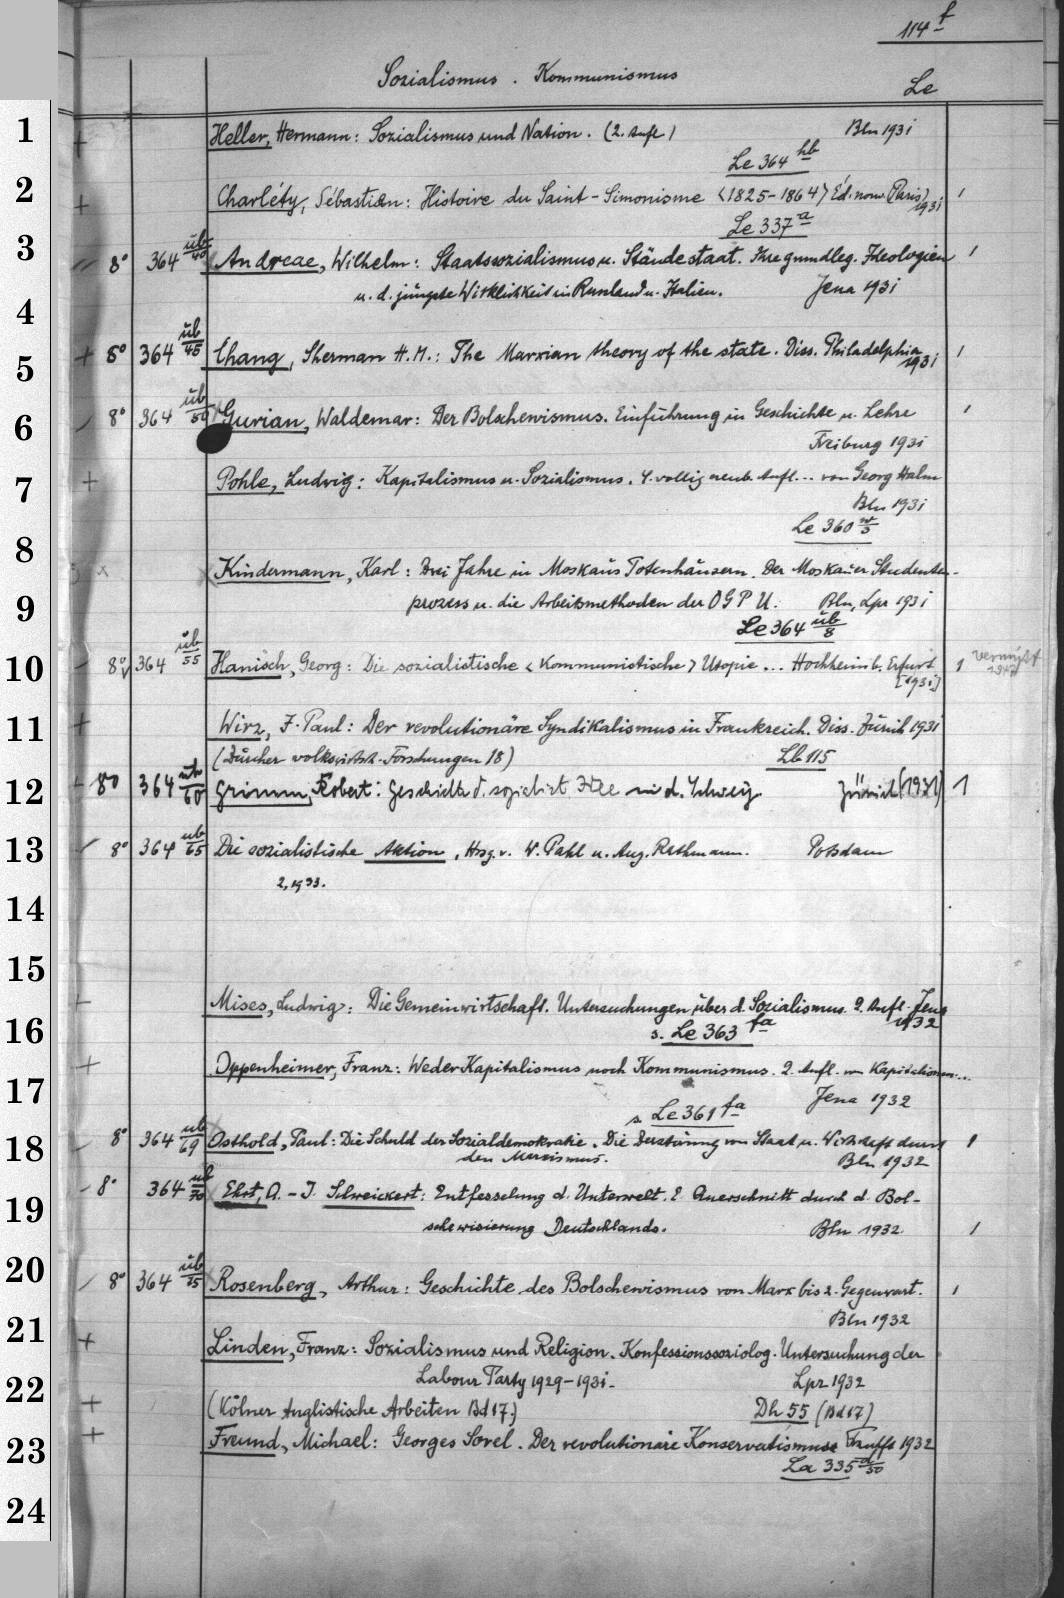 114 f
Sozialismus. Kommunismus
Le
1
+ Heller, Hermann: Sozialismus und Nation. (2. Aufl.) Bln 1931
Le 364 hb
2
+ Charléty, Sébastien: Histoire du Saint-Simonisme <1825-1864> Éd. nouv. Paris 1931 1
Le 337 a
3
8° 364 üb/40 Andreae, Wilhelm: Staatssozialismus u. Ständestaat. Ihre grundleg. Ideologien 1
u. d. jüngste Wirklichkeit in Russland u. Italien. Jena 1931
4
+ 8° 364 üb/45 Chang, Sherman H. M.: The Marxian theory of the state. Diss. Philadelphia 1931 1
5
8° 364 üb/50 Gurian, Waldemar: Der Bolschewismus. Einführung in Geschichte u. Lehre 1
6
Freiburg 1931
+ Pohle, Ludwig: Kapitalismus u. Sozialismus. 4. völlig neub. Aufl... von Georg Halm
7
Bln 1931
Le 360
8
x Kindermann, Karl: Drei Jahre in Moskaus Totenhäusern. Der Moskauer Studenten-
9
prozess u. die Arbeitsmethoden der OGPU. Bln, Lpz 1931
Le 364 üb/8
10
8° 364 üb/55 Hanisch, Georg: Die sozialistische <kommunistische> Utopie... Hochheim b. Erfurt [1931] 1 vermißt
11
+ Wirz, J. Paul: Der revolutionäre Syndikalismus in Frankreich. Diss. Zürich 1931
(Zürcher volkswirtsch. Forschungen 18) Lb 115
12
8° 364 üb/60 Grimm, Robert: Geschichte d. sozialist. Idee in d. Schweiz. Zürich (1931) 1
13
8° 364 üb/65 Die sozialistische Aktion, Hrsg. v. W. Pahl u. Aug. Rathmann. Potsdam
2, 1933.
14
15
Mises, Ludwig: Die Gemeinwirtschaft. Untersuchungen über d. Sozialismus. 2. Aufl. Jena 1932
16
s. Le 363 fa
+ Oppenheimer, Franz: Weder Kapitalismus noch Kommunismus. 2. Aufl. von Kapitalismus...
17
Jena 1932
s. Le 361 fa
18
8° 364 üb/69 Osthold, Paul: Die Schuld der Sozialdemokratie. Die Zerstörung von Staat u. Wirtschaft durch 1
den Marxismus. Bln 1932
8° 364 üb/70 Ehrt, A. - J. Schweickert: Entfesselung d. Unterwelt. E. Querschnitt durch d. Bol-
19
schewisierung Deutschlands. Bln 1932 1
20
8° 364 üb/75 Rosenberg, Arthur: Geschichte des Bolschewismus von Marx bis z. Gegenwart. 1
Bln 1932
21
+ Linden, Franz: Sozialismus und Religion. Konfessionssoziolog. Untersuchung der
Labour Party 1929-1931. Lpz 1932
22
+ (Kölner Anglistische Arbeiten Bd 17.) Dh 55 (Bd 17)
+ Freund, Michael: Georges Sorel. Der revolutionäre Konservatismus Frankft 1932
23
La 335 d/50
24